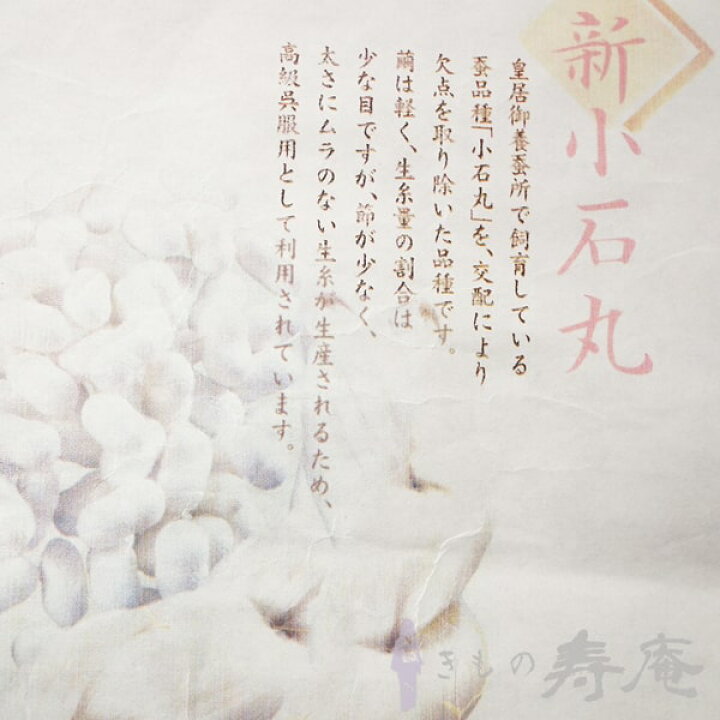 新小石丸
皇居御養蚕所で飼育している
蚕品種「小石丸」を、交配により
欠点を取り除いた品種です。
繭は軽く、生糸量の割合は
少な目ですが、節が少なく、
太さにムラのない生糸が生産されるため、
高級呉服用として利用されています。
きもの寿庵